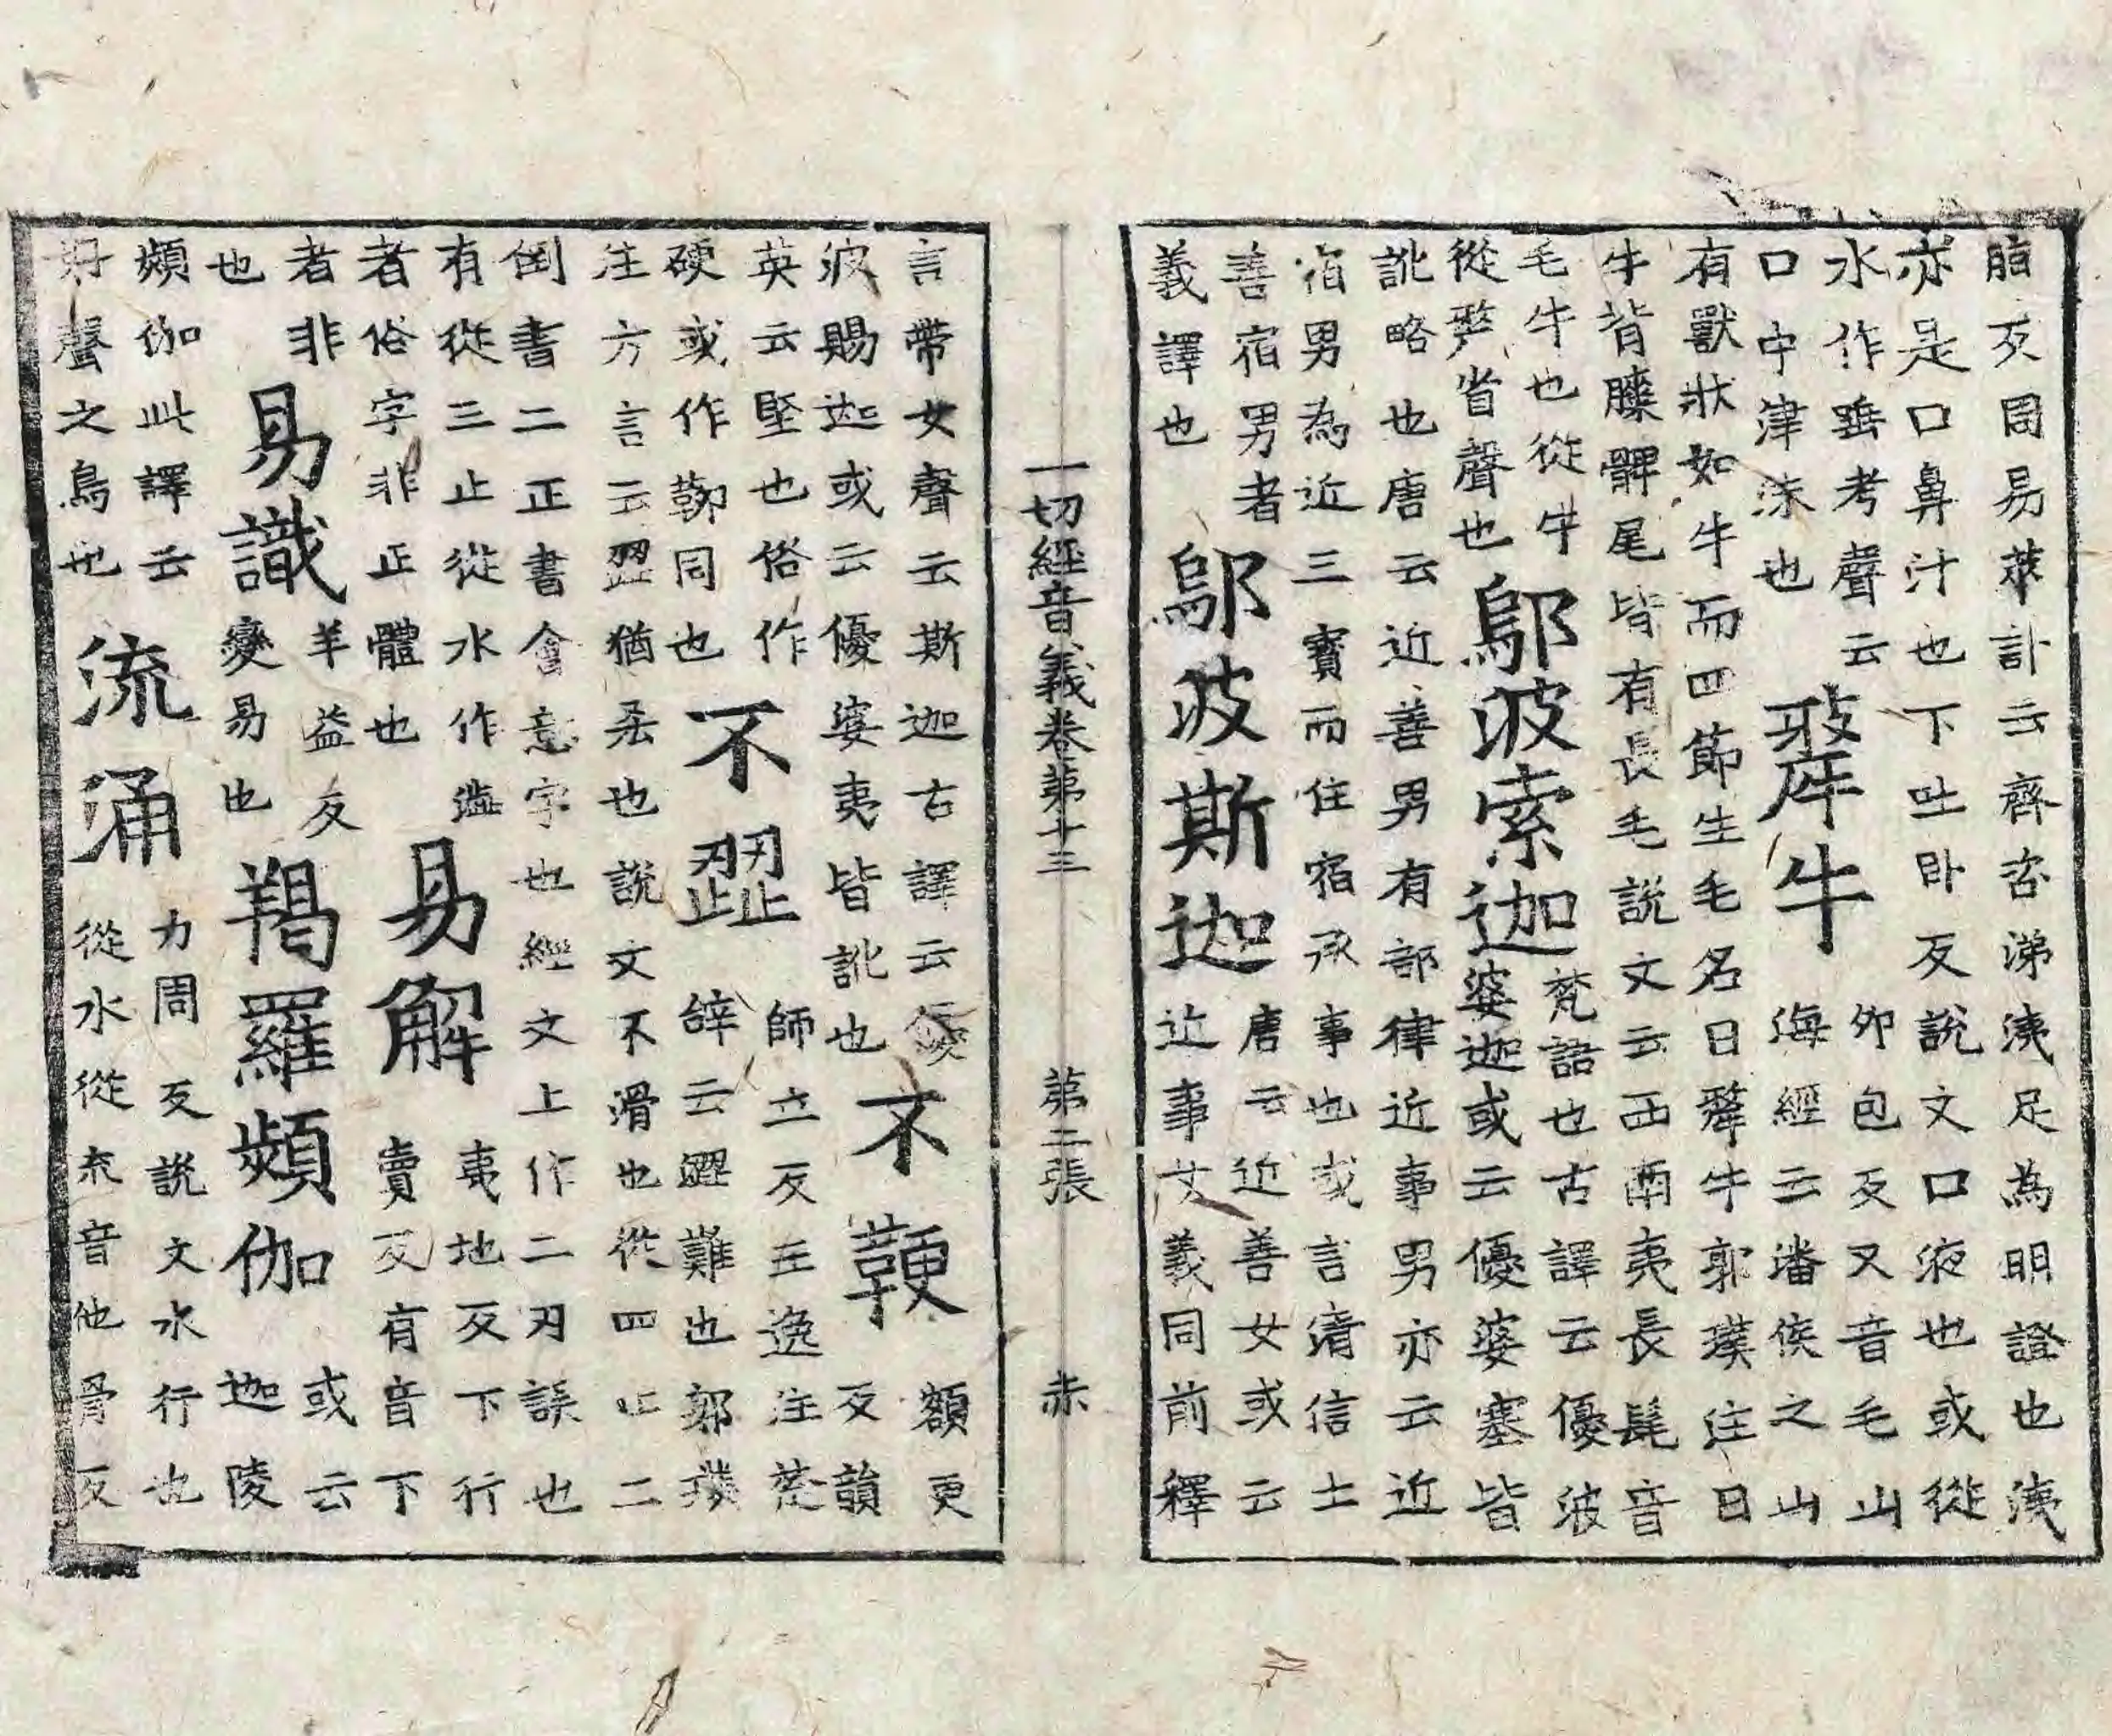 脂反周易萃卦云齊咨涕洟足為明證也洟
亦是口鼻汁也下吐臥反說文口液也或從
水作唾考聲云
口中津沫也
犛牛
卯包反又音毛山
海經云潘侯之山
有獸狀如牛而四節生毛名曰犛牛郭璞注曰
牛背膝髀尾皆有長毛說文云西南夷長髦音
毛牛也從牛
從𠩺省聲也
鄔波索迦
梵語也古譯云優波
婆迦或云優婆塞皆
訛略也唐云近善男有部律近事男亦云近
宿男為近三寶而住宿承事也或言清信士
善宿男者
義譯也
鄔波斯迦
唐云近善女或云
近事女義同前釋
一切經音義卷第十三 第二張 赤
言帶女聲云斯迦古譯云優
波賜迦或云優婆夷皆訛也
不鞕
額更
反韻
英云堅也俗作
硬或作同也
不歰
師立反王逸注楚
辭云歰難也郭璞
注方言云歰猶也說文不滑也從四止二
倒書二正書會意字也經文上作二刃誤也
有從三止從水作澁
者俗字非正體也
易解
夷地反下行
賣反有音下
者非
也
易識
羊益反
變易也
羯羅頻伽
或云
迦陵
頻伽此譯云
好聲之鳥也
流涌
力周反說文水行也
從水從㐬音他骨反